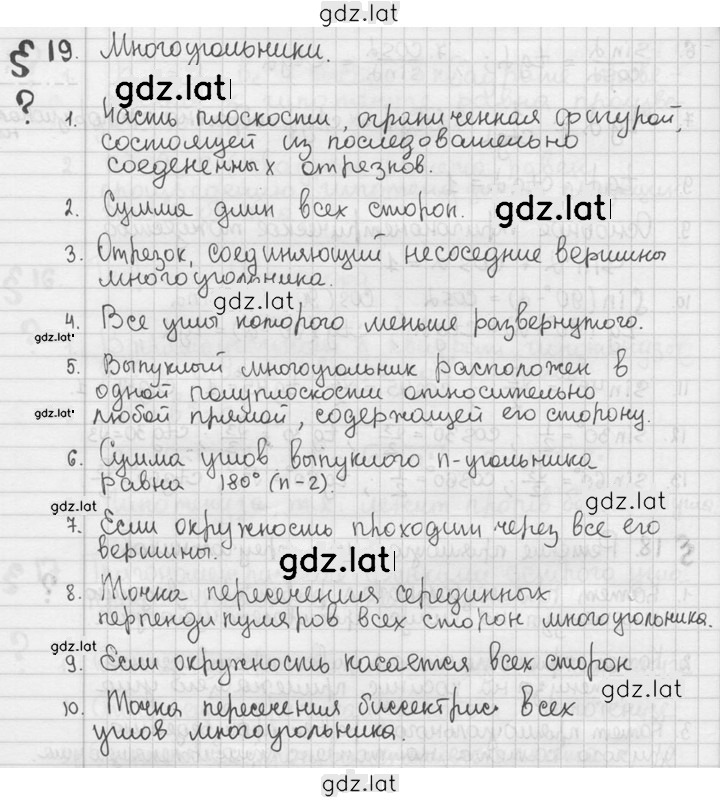 gdz.lat
§ 19. Многоугольники.
gdz.lat
?
1. Часть плоскости, ограниченная фигурой,
состоящей из последовательно
соедененных отрезков.
2. Сумма длин всех сторон. gdz.lat
3. Отрезок, соединяющий несоседние вершины
многоугольника.
gdz.lat
4. Все углы которого меньше развернутого.
gdz.lat
5. Выпуклый многоугольник расположен в
одной полуплоскости относительно
gdz.lat любой прямой, содержащей его сторону.
6. Сумма углов выпуклого n-угольника
равна 180° (n-2)
gdz.lat gdz.lat
7. Если окружность проходит через все его
вершины. gdz.lat
8. Точка пересечения серединных
перпендикуляров всех сторон многоугольника.
gdz.lat
9. Если окружность касается всех сторон
gdz.lat
10. Точка пересечения биссектрис всех
углов многоугольника.
gdz.lat